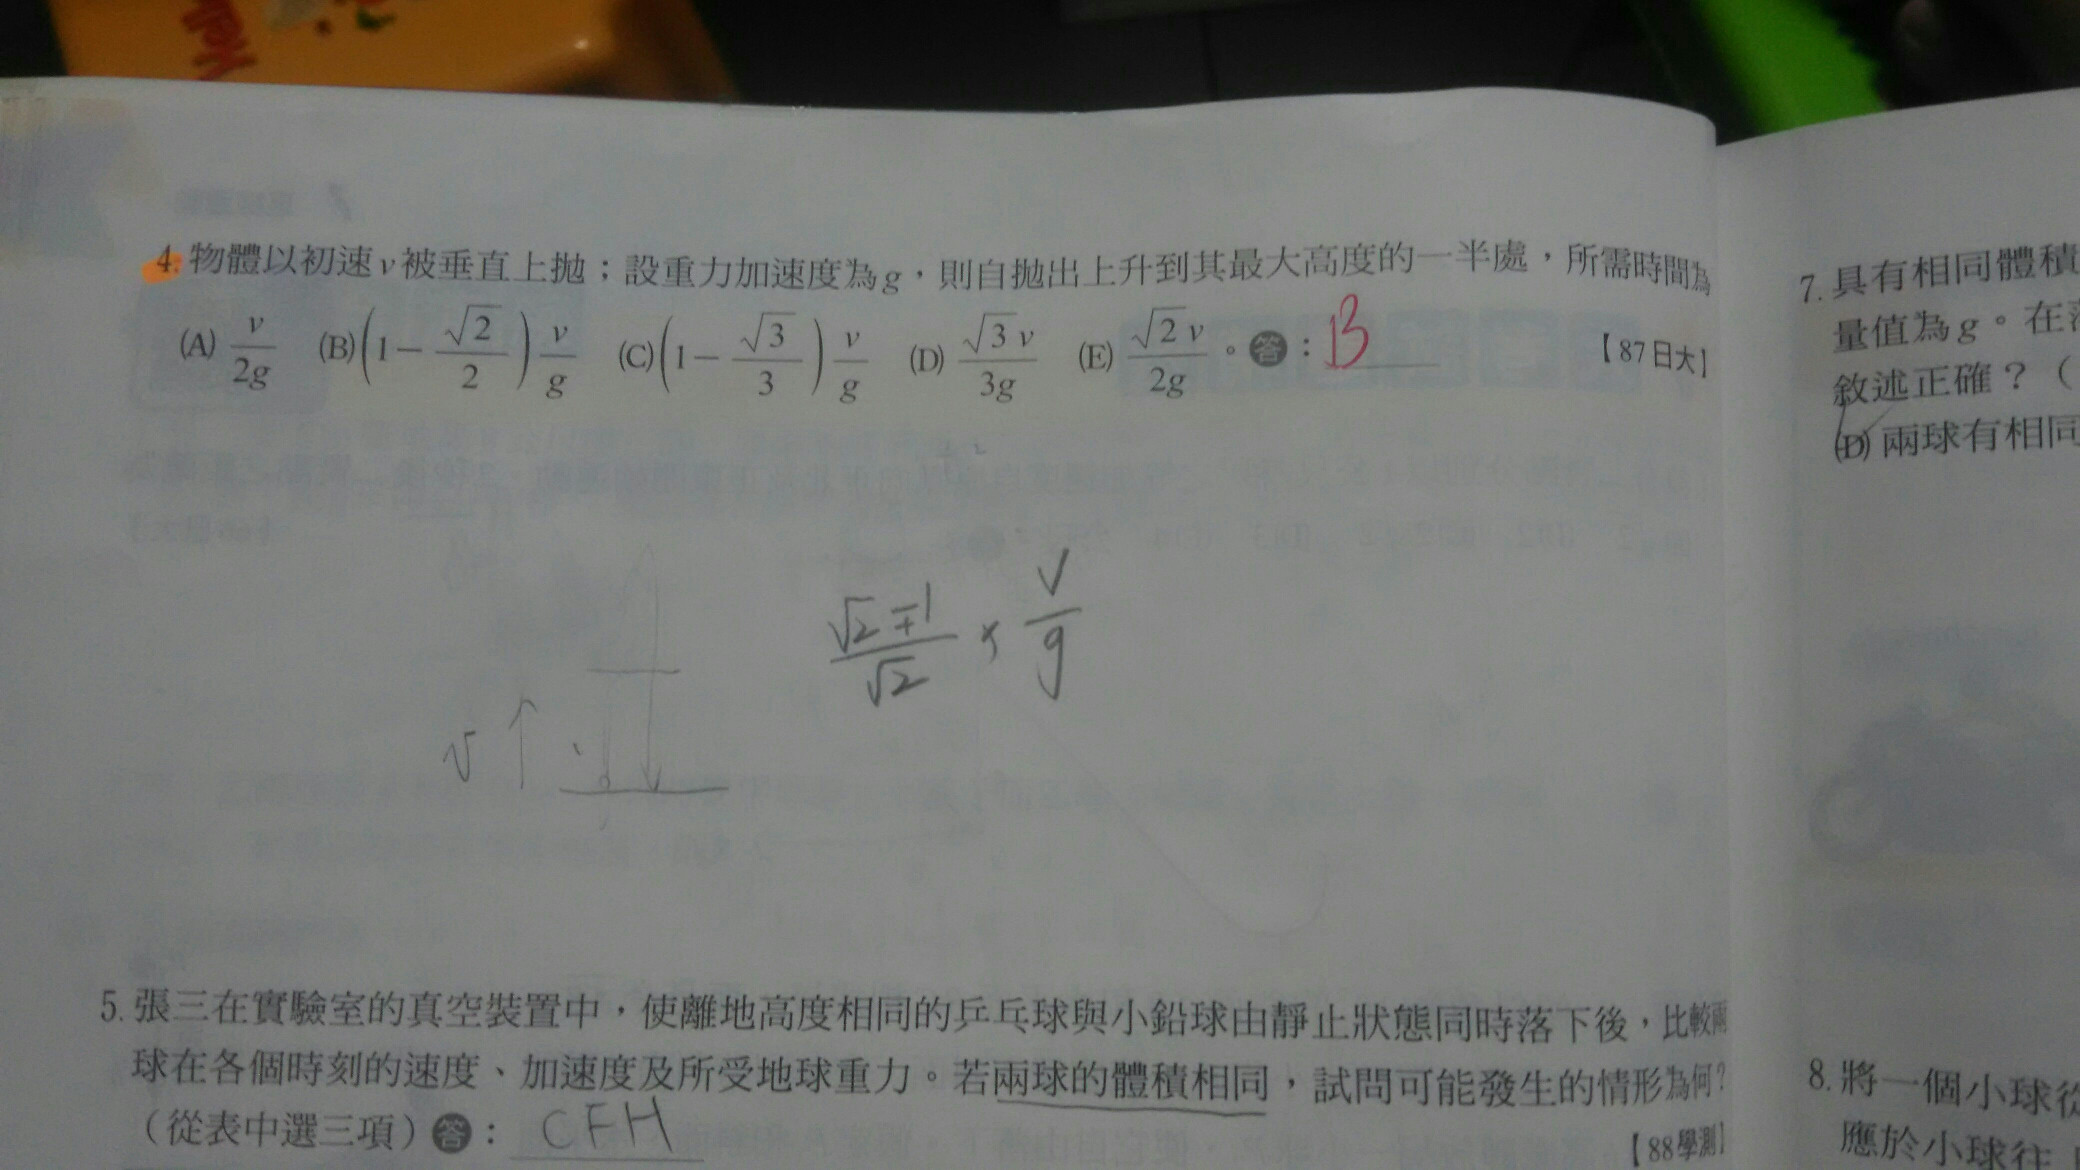 4. 物體以初速v被垂直上拋；設重力加速度為g，則自拋出上升到其最大高度的一半處，所需時間為
(A) v/2g (B)(1－√2/2)v/g (C)(1－√3/3)v/g (D) √3v/3g (E) √2v/2g。答：B 【87日大】
v
√2∓1/√2 × v/g
5. 張三在實驗室的真空裝置中，使離地高度相同的乒乓球與小鉛球由靜止狀態同時落下後，比較兩
球在各個時刻的速度、加速度及所受地球重力。若兩球的體積相同，試問可能發生的情形為何？
（從表中選三項）答：CFH 【88學測】
7. 具有相同體積
量值為g。在
敘述正確？（
(D) 兩球有相同
8. 將一個小球從
應於小球往